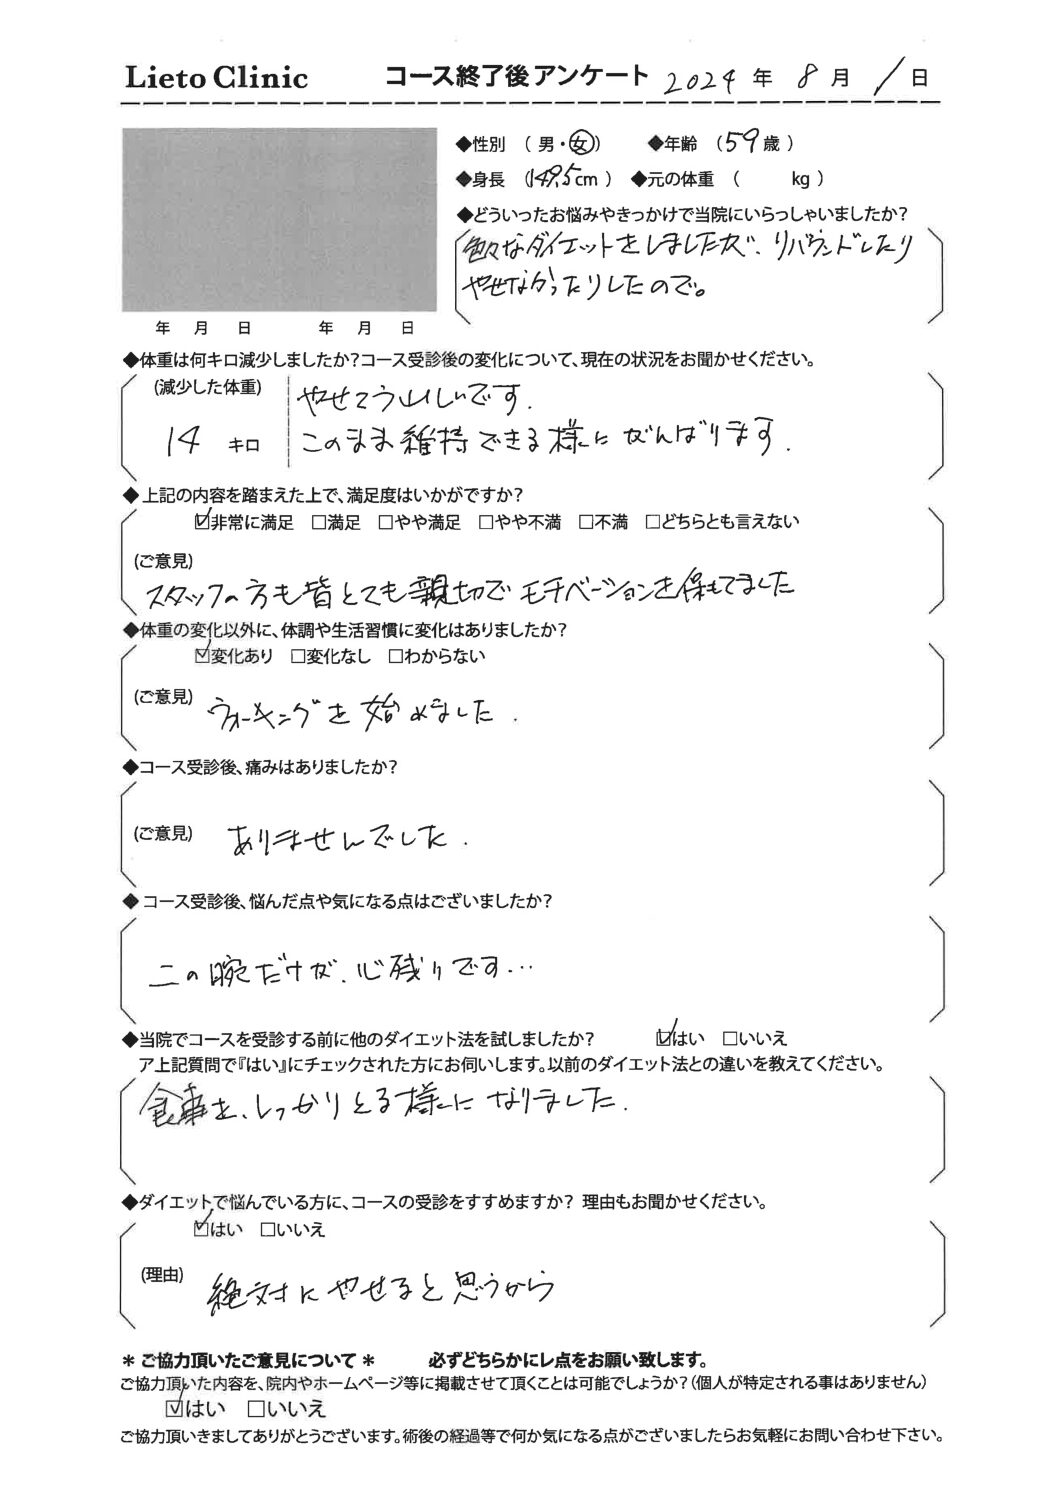 Lieto Clinic コース終了後アンケート 2024 年 8 月 1 日
◆性別 ( 男・女) ◆年齢 (59歳 )
◆身長 (149.5cm ) ◆元の体重 ( kg )
◆どういったお悩みやきっかけで当院にいらっしゃいましたか?
色々なダイエットをしましたが、リバウンドしたり
やせなかったりしたので。
年 月 日 年 月 日
◆体重は何キロ減少しましたか?コース受診後の変化について、現在の状況をお聞かせください。
(減少した体重) やせてうれしいです.
14 キロ このまま維持できる様にがんばります.
◆上記の内容を踏まえた上で、満足度はいかがですか?
☑非常に満足 □満足 □やや満足 □やや不満 □不満 □どちらとも言えない
(ご意見)
スタッフの方も皆とても親切でモチベーションを保もてました
◆体重の変化以外に、体調や生活習慣に変化はありましたか?
☑変化あり □変化なし □わからない
(ご意見) ウォーキングを始めました.
◆コース受診後、痛みはありましたか?
(ご意見) ありませんでした.
◆コース受診後、悩んだ点や気になる点はございましたか?
二の腕だけが、心残りです...
◆当院でコースを受診する前に他のダイエット法を試しましたか? ☑はい □いいえ
ア上記質問で『はい』にチェックされた方にお伺いします。以前のダイエット法との違いを教えてください。
食事を、しっかりとる様になりました.
◆ダイエットで悩んでいる方に、コースの受診をすすめますか? 理由もお聞かせください。
☑はい □いいえ
(理由) 絶対にやせると思うから
＊ご協力頂いたご意見について＊ 必ずどちらかにレ点をお願い致します。
ご協力頂いた内容を、院内やホームページ等に掲載させて頂くことは可能でしょうか?(個人が特定される事はありません)
☑はい □いいえ
ご協力頂いきましてありがとうございます。術後の経過等で何か気になる点がございましたらお気軽にお問い合わせ下さい。